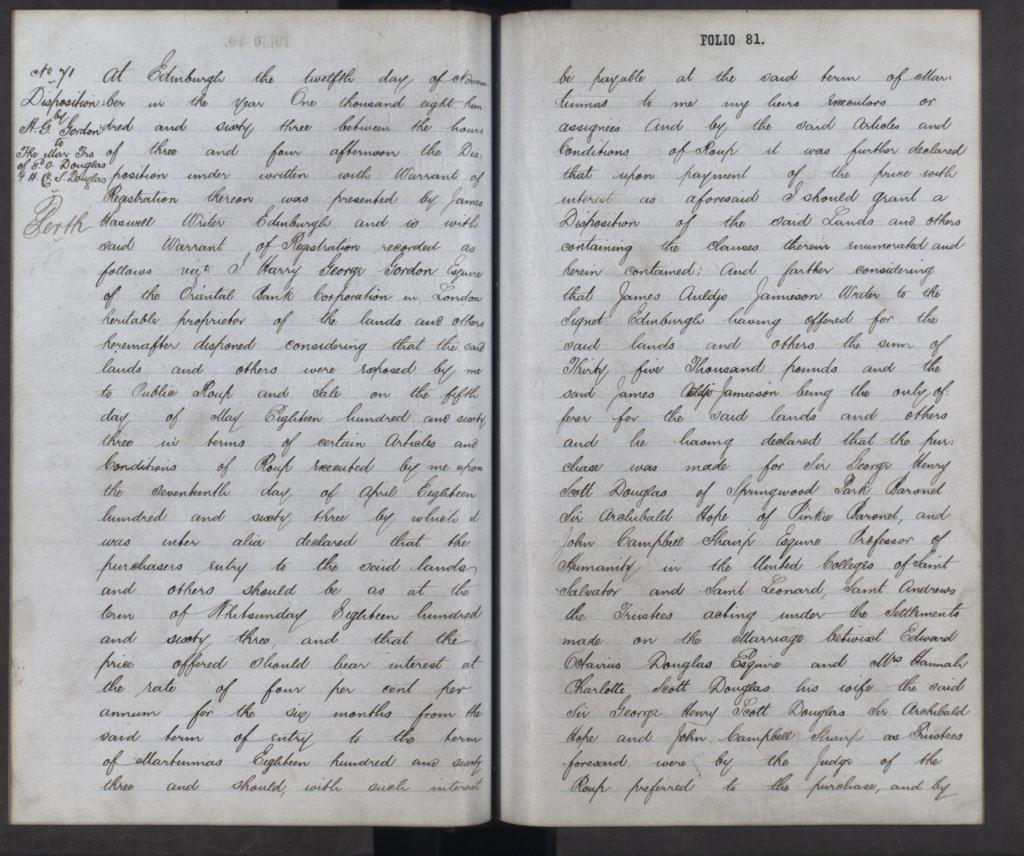 No 71
Disposition
by
H. G. Gordon
to
The Mar Trs
of E. O. Douglas
& H. C. S. Douglas
Perth
At Edinburgh the twelfth day of Novem
ber in the year One thousand eight hun
dred and sixty three between the hours
of three and four afternoon the Dis:
position under written with Warrant of
Registration thereon was presented by James
Haswell Writer Edinburgh and is with
said Warrant of Registration recorded as
follows vizt. I Harry George Gordon Esquire
of the Oriental Bank Corporation in London
heritable proprietor of the lands and others
hereinafter disponed considering that the said
lands and others were exposed by me
to Public Roup and Sale on the fifth
day of May Eighteen hundred and sixty
three in terms of certain Articles and
Conditions of Roup executed by me upon
the seventeenth day of April Eighteen
hundred and sixty three by which it
was inter alia declared that the
purchasers entry to the said lands
and others should be as at the
term of Whitsunday Eighteen hundred
and sixty three, and that the
price offered should bear interest at
the rate of four per cent per
annum for the six months from the
said term of entry to the term
of Martinmas Eighteen hundred and sixty
three and should, with such interest
FOLIO 81.
be payable at the said term of Mar:
tinmas to me my heirs executors or
assignees And by the said Articles and
Conditions of Roup it was further declared
that upon payment of the price with
interest as aforesaid I should grant a
Disposition of the said Lands and others
containing the clauses therein enumerated and
herein contained; And farther considering
that James Auldjo Jamieson Writer to the
Signet Edinburgh having offered for the
said lands and others the sum of
Thirty five Thousand pounds and the
said James Auldjo Jamieson being the only of:
ferer for the said lands and others
and he having declared that the pur:
chase was made for Sir George Henry
Scott Douglas of Springwood Park Baronet
Sir Archibald Hope of Pinkie Baronet, and
John Campbell Shairp Esquire Professor of
Humanity in the United Colleges of Saint
Salvator and Saint Leonard, Saint Andrews
the Trustees acting under the Settlements
made on the Marriage betwixt Edward
Octavius Douglas Esquire and Mrs Hannah
Charlotte Scott Douglas his wife the said
Sir George Henry Scott Douglas Sir Archibald
Hope and John Campbell Shairp as Trustees
foresaid were by the Judge of the
Roup preferred to the purchase, and by